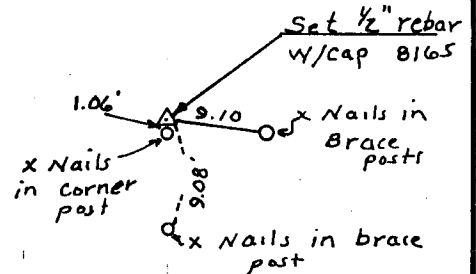 Set ½" rebar
W/Cap 8165
1.06'
9.10
X Nails in
Brace
posts
X Nails
in corner
post
9.08
X Nails in brace
post